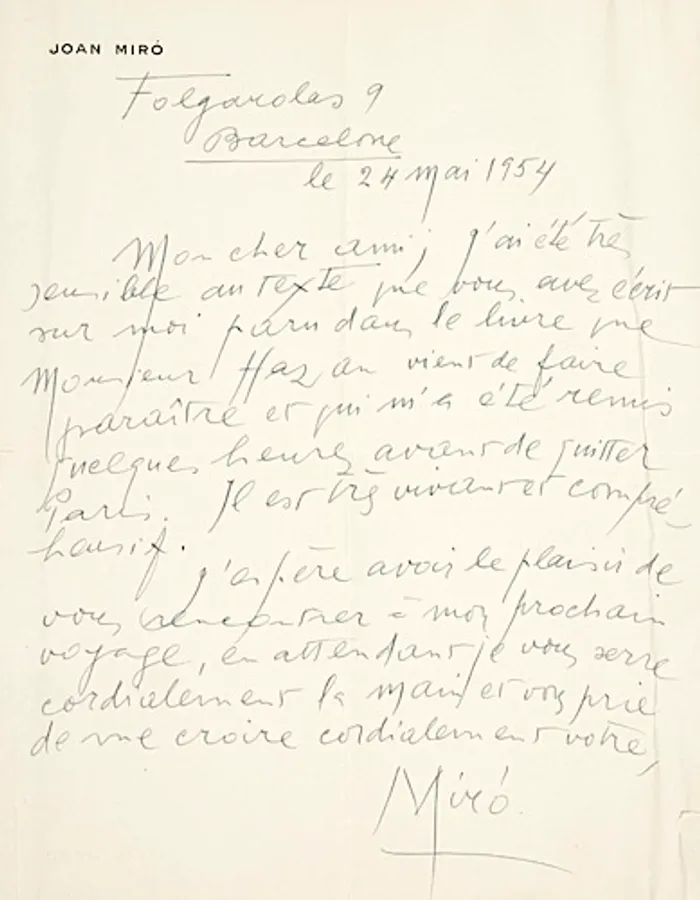 JOAN MIRÓ
Folgarolas 9
Barcelone
le 24 mai 1954
Mon cher ami, j'ai été très
sensible au texte que vous avez écrit
sur moi paru dans le livre que
Monsieur Hazan vient de faire
paraître et qui m'a été remis
quelques heures avant de quitter
Paris. Il est très vivant et compré-
hensif.
J'espère avoir le plaisir de
vous rencontrer à mon prochain
voyage, en attendant je vous serre
cordialement la main et vous prie
de me croire cordialement votre,
Miró.